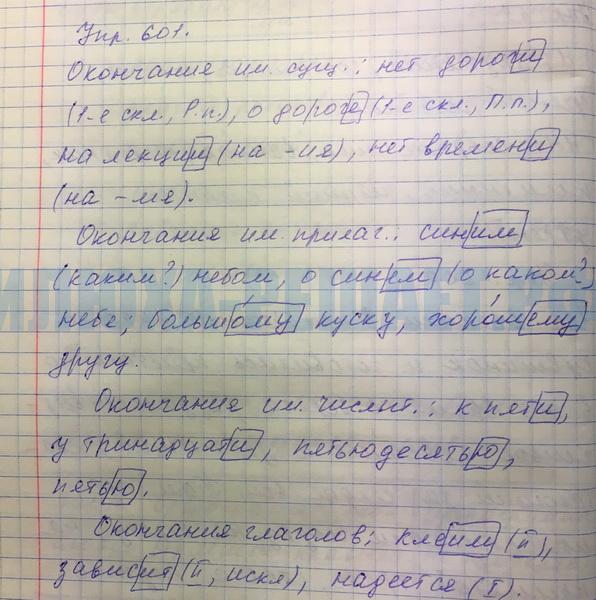 Упр. 601.
Окончания им. сущ.: нет дороги
(1-е скл., Р.п.), о дороге (1-е скл., П.п.),
на лекции (на -ия), нет времени
(на -мя).
Окончания им. прилаг.: синим
(каким?) небом, о синем (о каком?)
небе; большому куску, хорошему
другу.
Окончания им. числит.: к пяти,
у тринадцати, пятьюдесятью,
пятью.
Окончания глаголов: клеим (II),
зависит (II, искл), надеется (I).